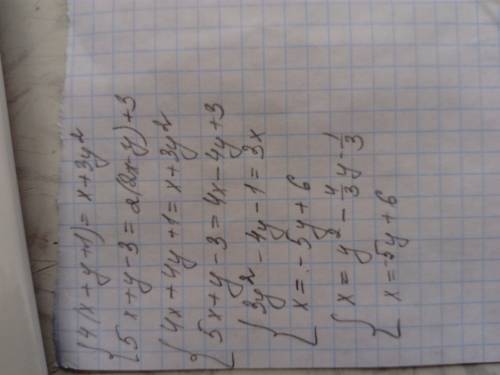 {4(x+y+1)=x+3y²
{5x+y-3=2(2x-y)+3
{4x+4y+1=x+3y²
{5x+y-3=4x-4y+3
{3y²-4y-1=3x
x=-5y+6
{x=y²-4/3y-1/3
{x=5y+6